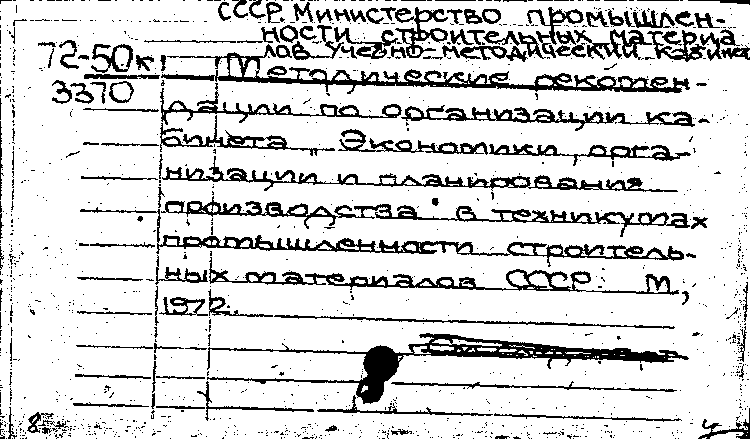 СССР. Министерство промышлен-
ности строительных материа
лов Учебно-методический кабинет
72-50к
3370
Методические рекомен-
дации по организации ка-
бинета „Экономики, орга-
низации и планирования
производства" в техникумах
промышленности строитель-
ных материалов СССР. М.,
1972.
8
4